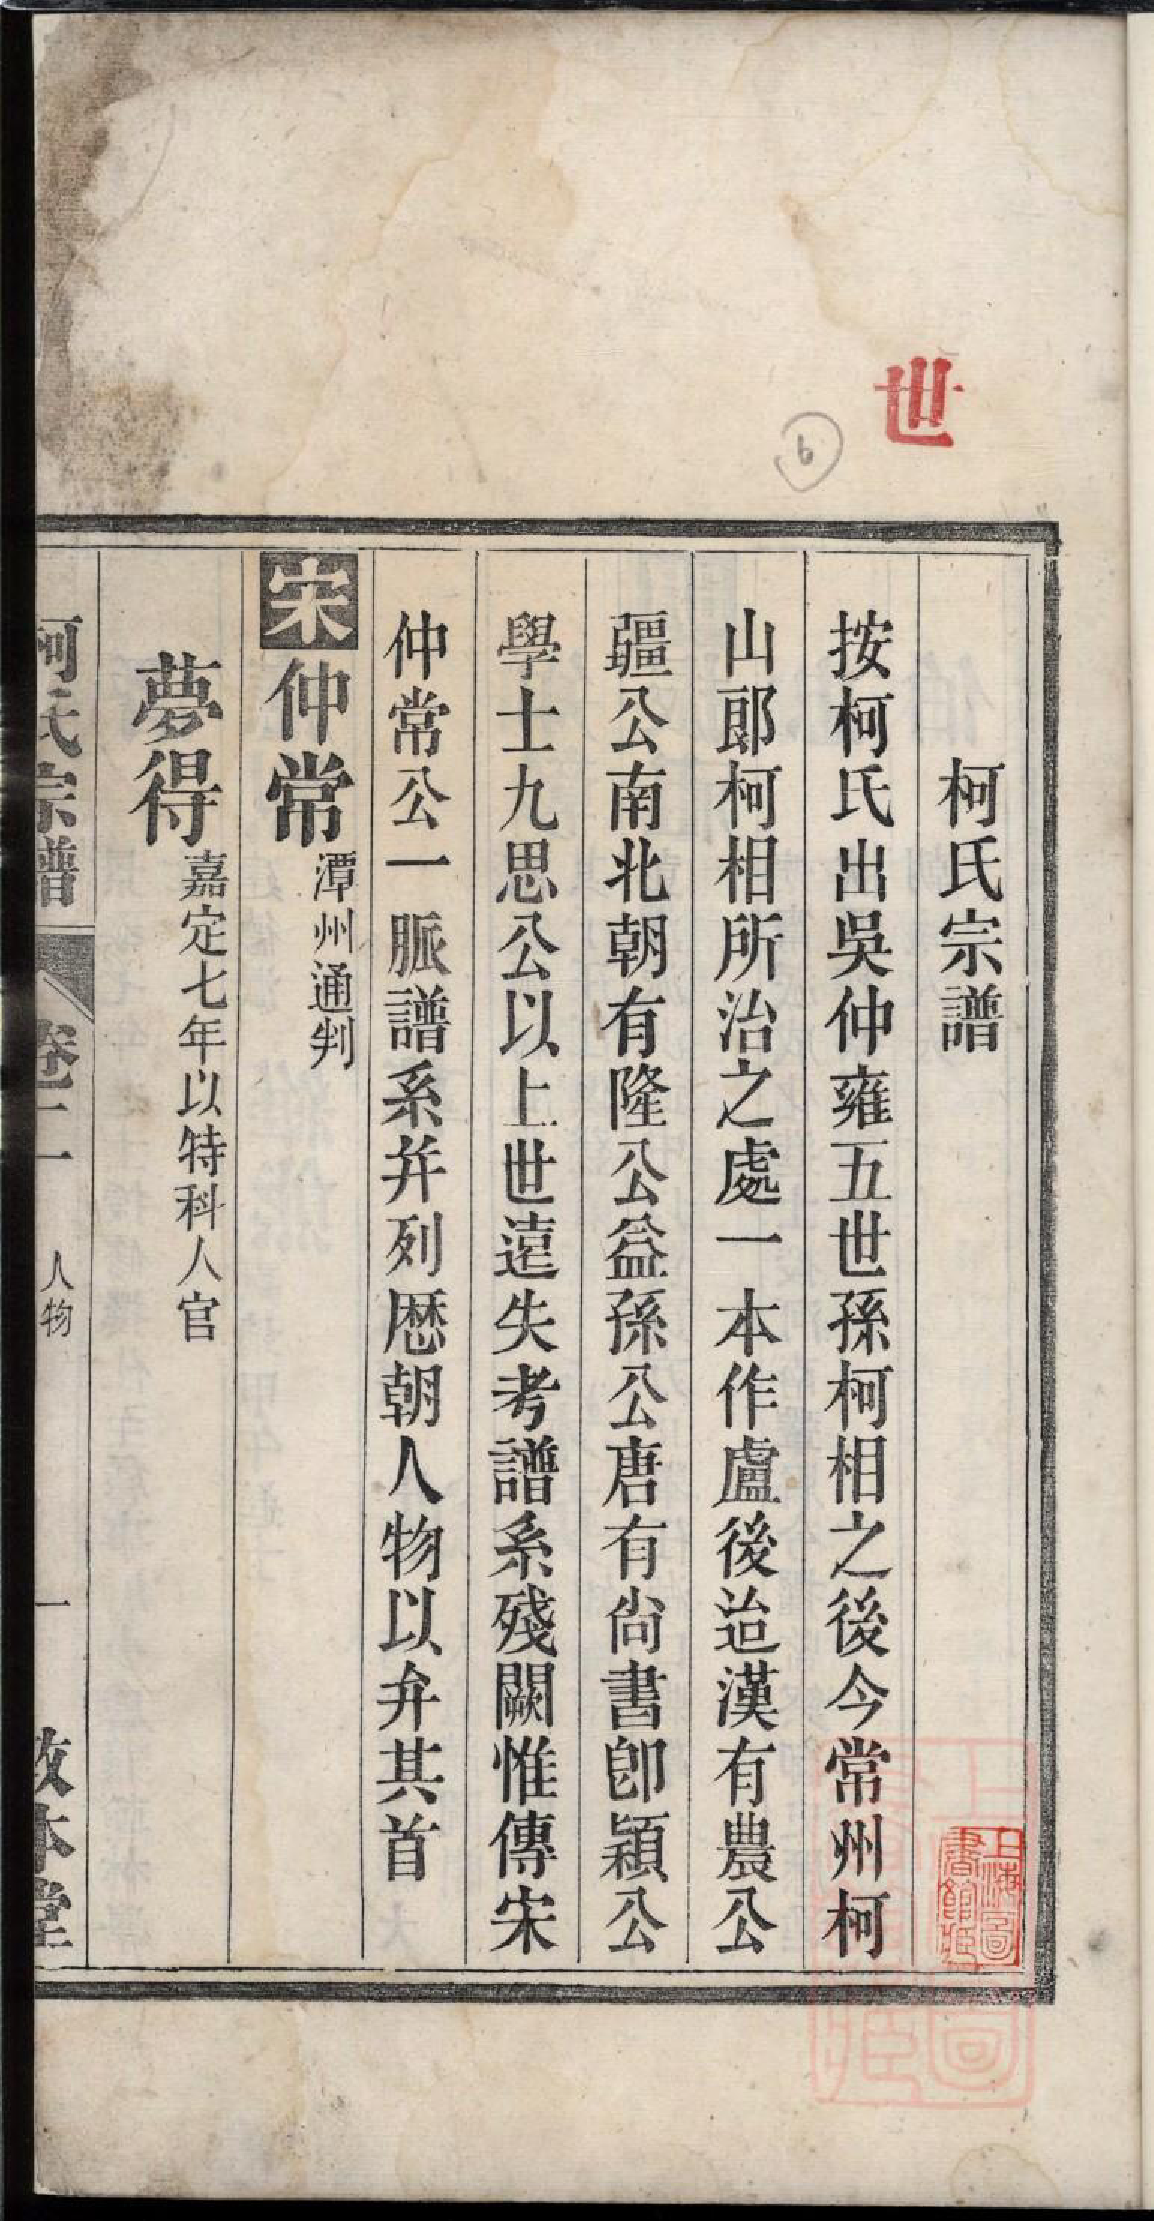 世
6
柯氏宗譜
按柯氏出吳仲雍五世孫柯相之後今常州柯
山郎柯相所治之處一本作盧後迨漢有農公
疆公南北朝有隆公益孫公唐有尙書卽穎公
學士九思公以上世遠失考譜系殘闕惟傳宋
仲常公一脈譜系幷列歷朝人物以弁其首
宋仲常潭州通判
夢得嘉定七年以特科人官
柯氏宗譜 卷二 人物 一 敦本堂
上海圖書館藏